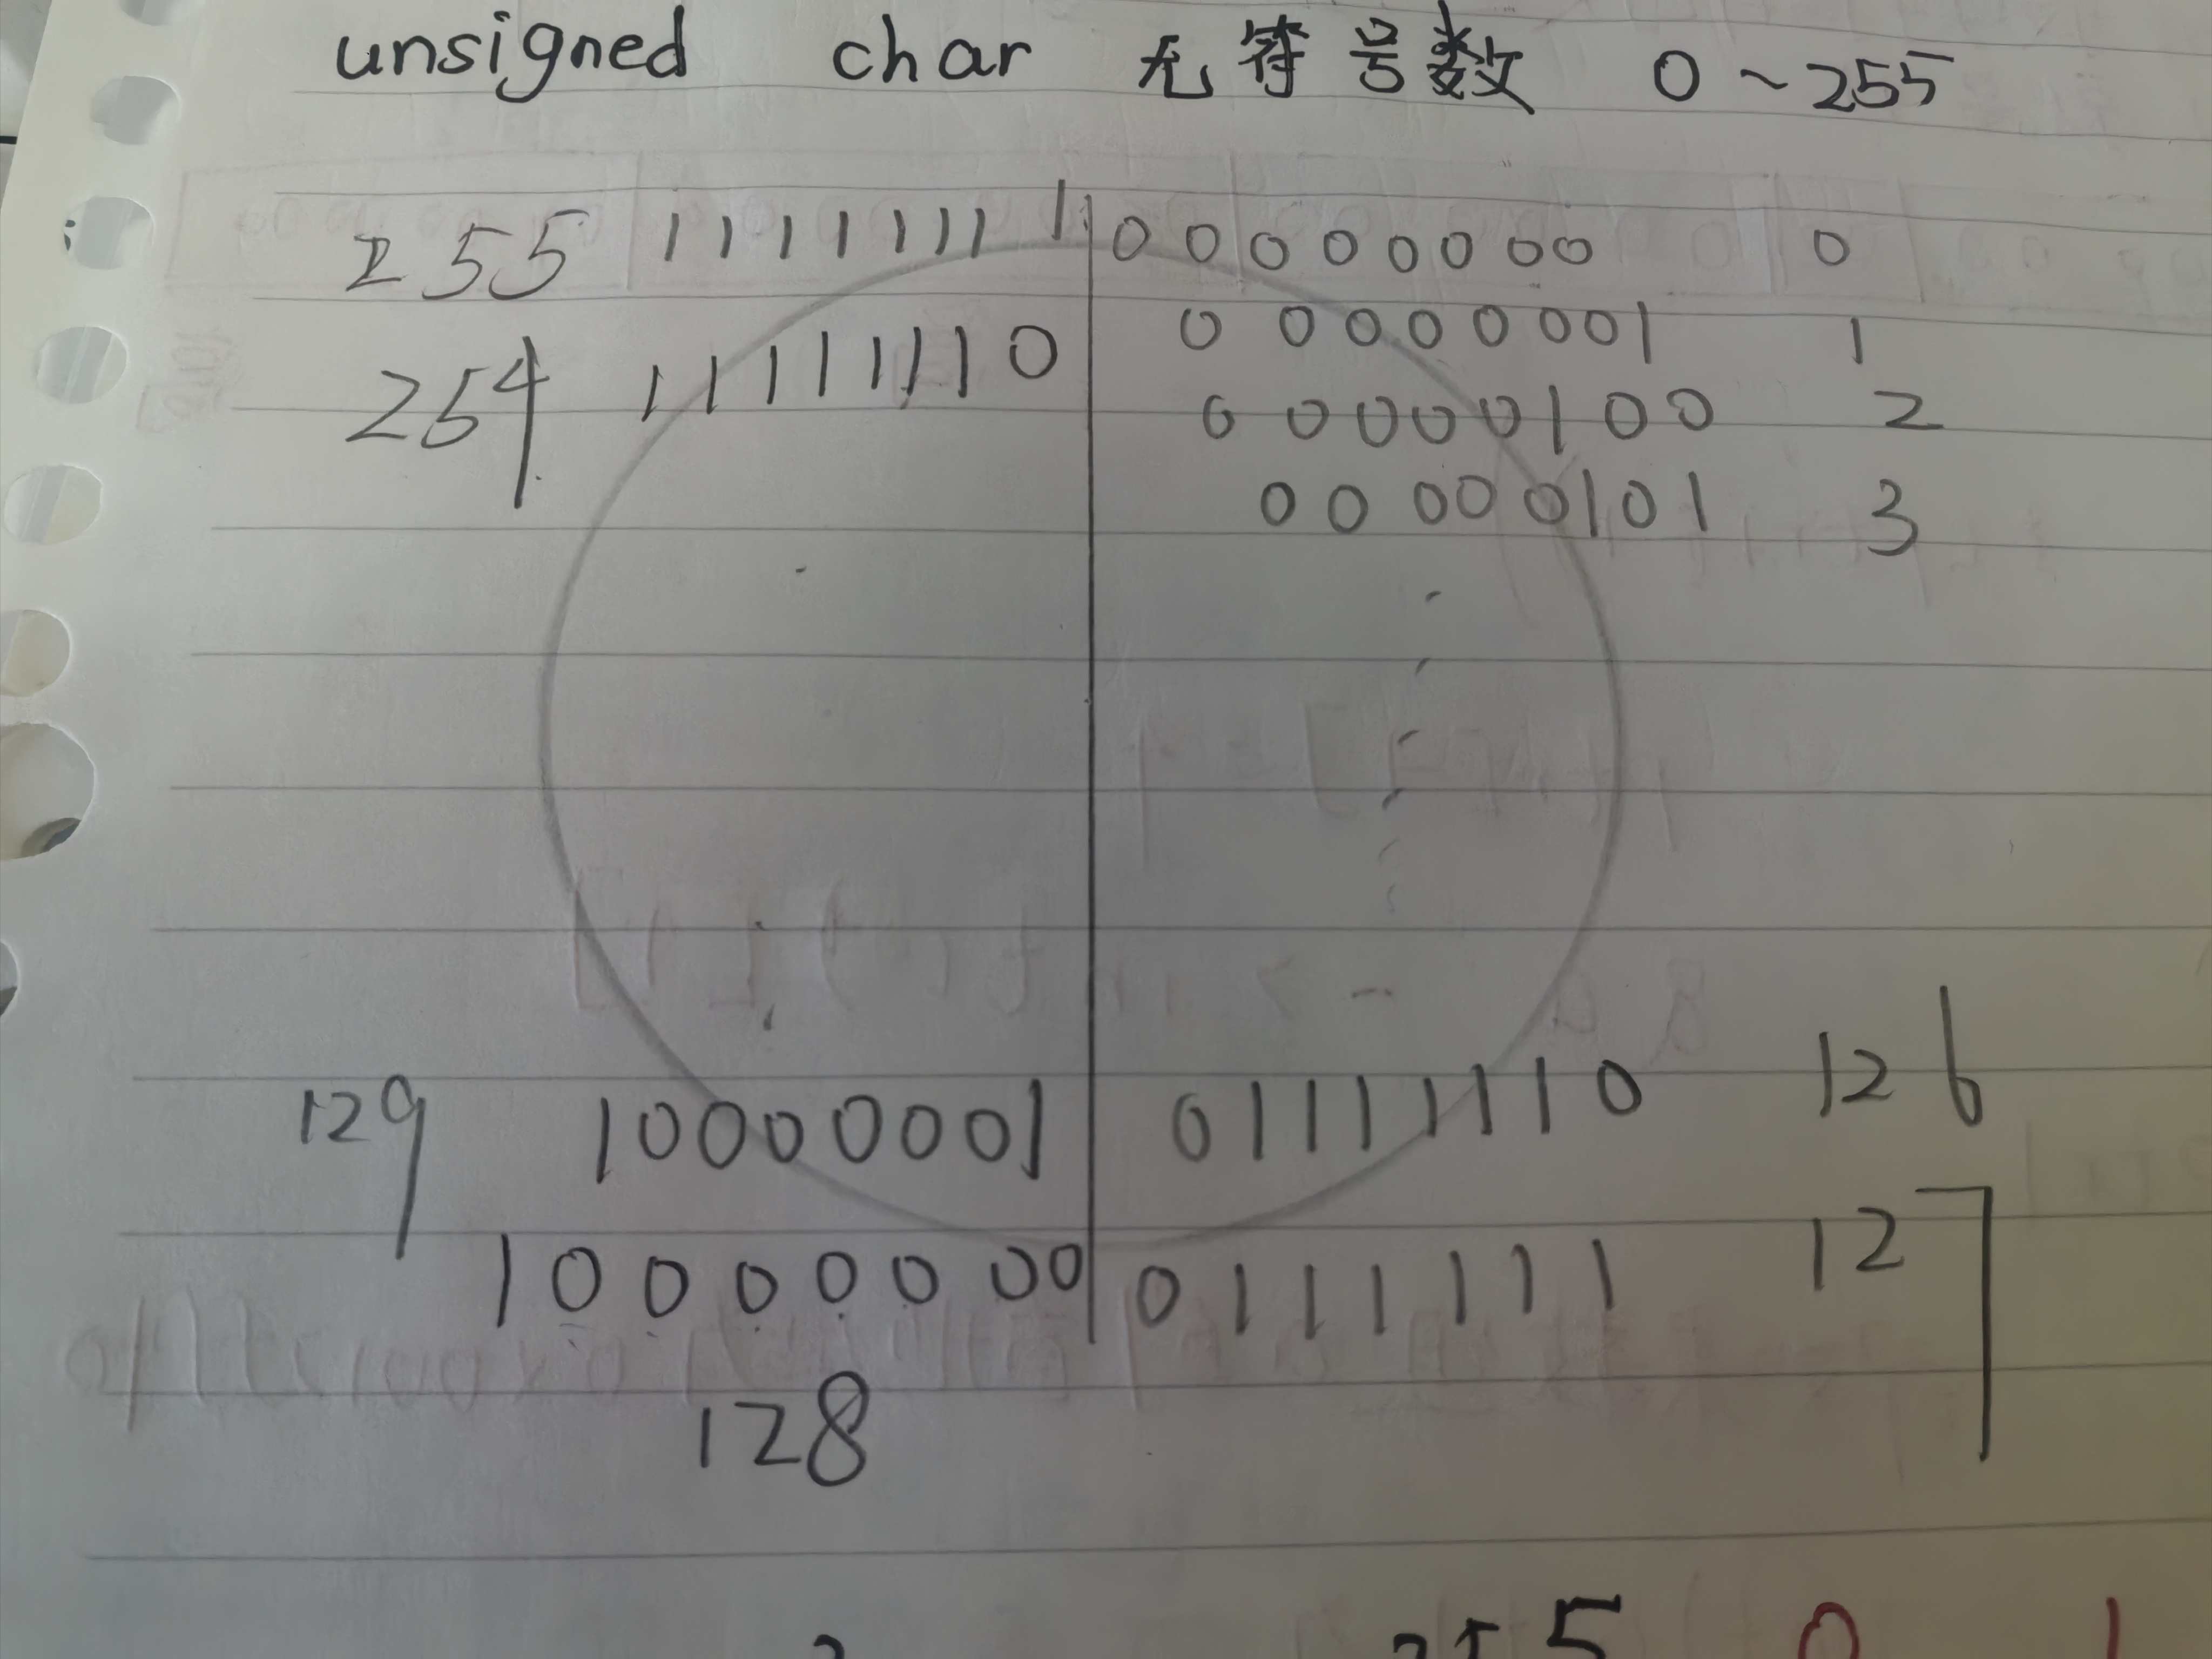 unsigned char 无符号数 0~255
255 11111111 00000000 0
254 11111110 00000001 1
00000100 2
00000101 3
129 10000001 01111110 126
10000000 0111111 127
128
255 0 1